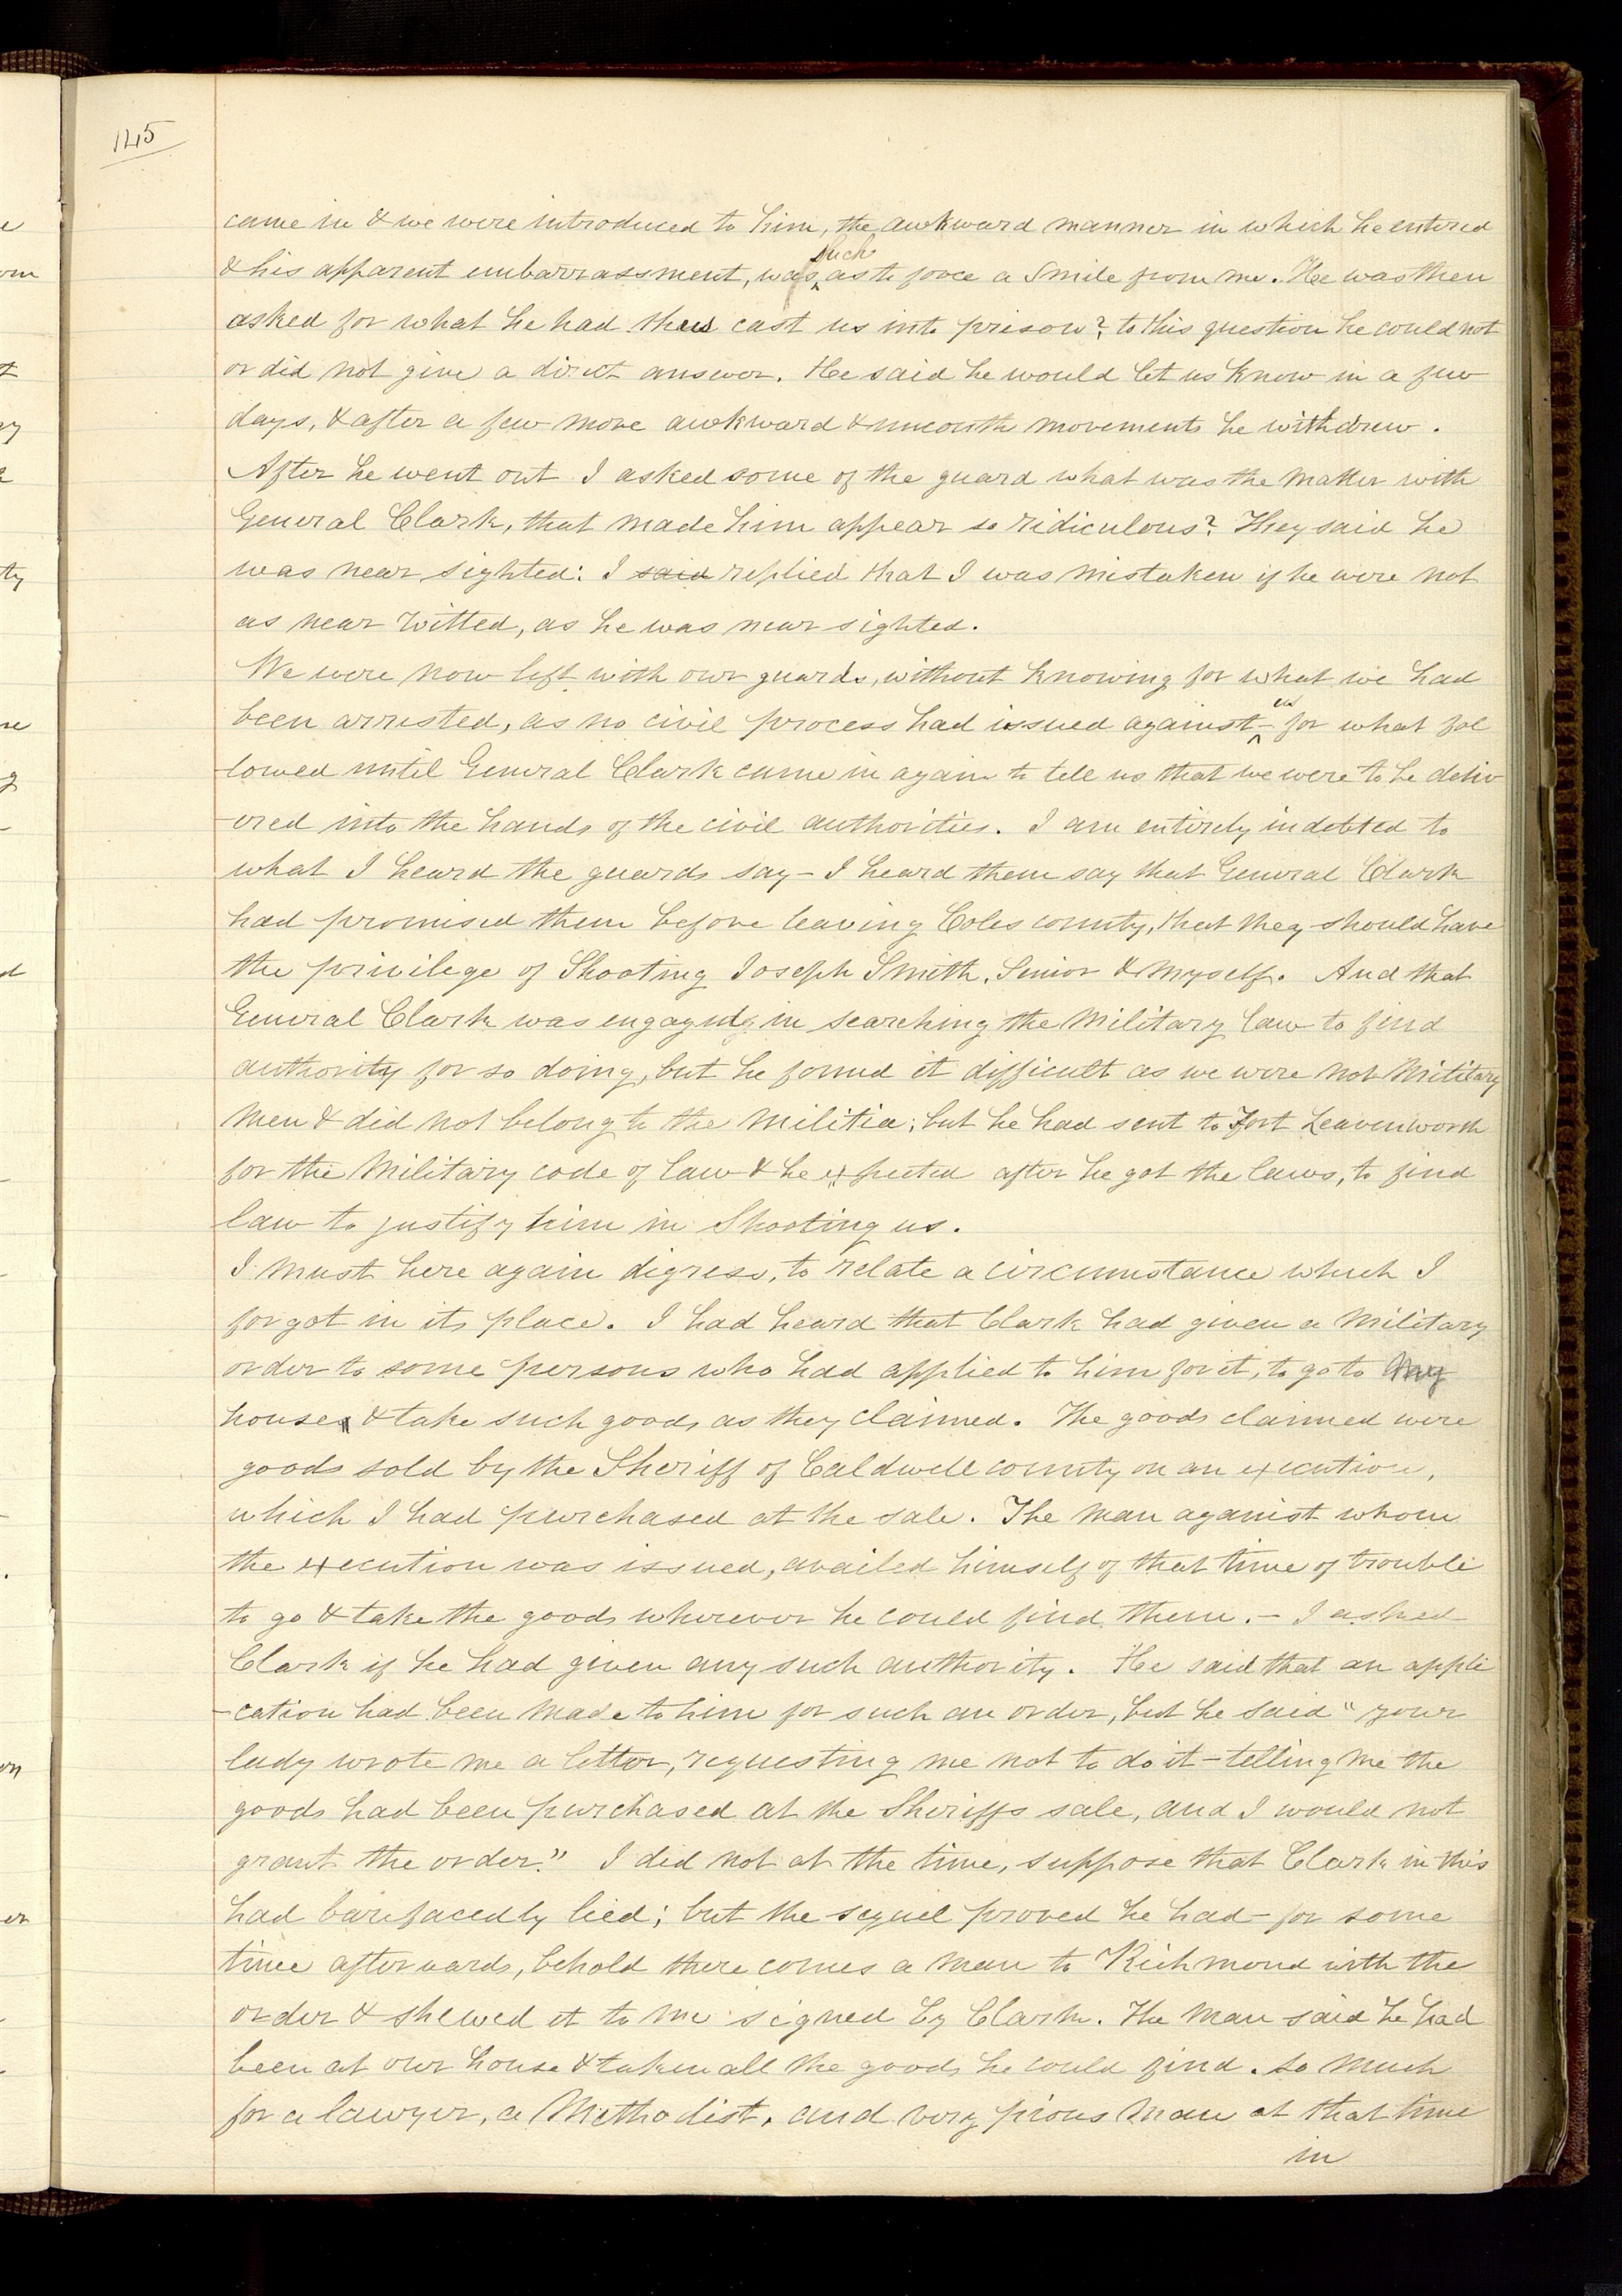 145
came in & we were introduced to him, the awkward manner in which he entered
& his apparent embarrassment, was such as to force a Smile from me. He was then
asked for what he had thus cast us into prison? to this question he could not
or did not give a direct answer. He said he would let us know in a few
days, & after a few more awkward & uncouth movements he withdrew.
After he went out I asked some of the guard what was the matter with
General Clark, that made him appear so ridiculous? They said he
was near sighted: I said replied that I was mistaken if he were not
as near witted, as he was near sighted.
We were now left with our guards, without knowing for what we had
been arrested, as no civil process had issued against us for what fol
lowed until General Clark came in again to tell us that we were to be deliv
-ered into the hands of the civil authorities. I am entirely indebted to
what I heard the guards say - I heard them say that General Clark
had promised them before leaving Coles county, that they should have
the privilege of Shooting Joseph Smith, Senior & myself. And that
General Clark was engaged in searching the Military law to find
authority for so doing, but he found it difficult as we were not Military
men & did not belong to the militia; but he had sent to Fort Leavenworth
for the Military code of law & he expected after he got the laws, to find
law to justify him in Shooting us.
I must here again digress, to relate a circumstance which I
forgot in its place. I had heard that Clark had given a military
order to some persons who had applied to him for it, to go to my
house & take such goods as they claimed. The goods claimed were
goods sold by the Sheriff of Caldwell county on an execution,
which I had purchased at the sale. The man against whom
the execution was issued, availed himself of that time of trouble
to go & take the goods wherever he could find them. - I asked
Clark if he had given any such authority. He said that an appli
-cation had been made to him for such an order, but he said "your
lady wrote me a letter, requesting me not to do it - telling me the
goods had been purchased at the Sheriffs sale, and I would not
grant the order." I did not at the time, suppose that Clark in this
had barefacedly lied; but the sequel proved he had - for some
time afterwards, behold there comes a man to Richmond with the
order & shewed it to me signed by Clark. The man said he had
been at our house & taken all the goods he could find. so much
for a lawyer, a Methodist, and very pious man at that time
in